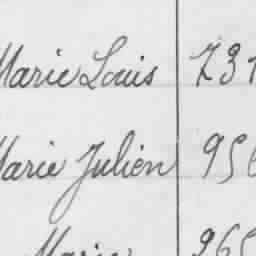 Marie Louis 731
Marie Julien 956
Marie 965